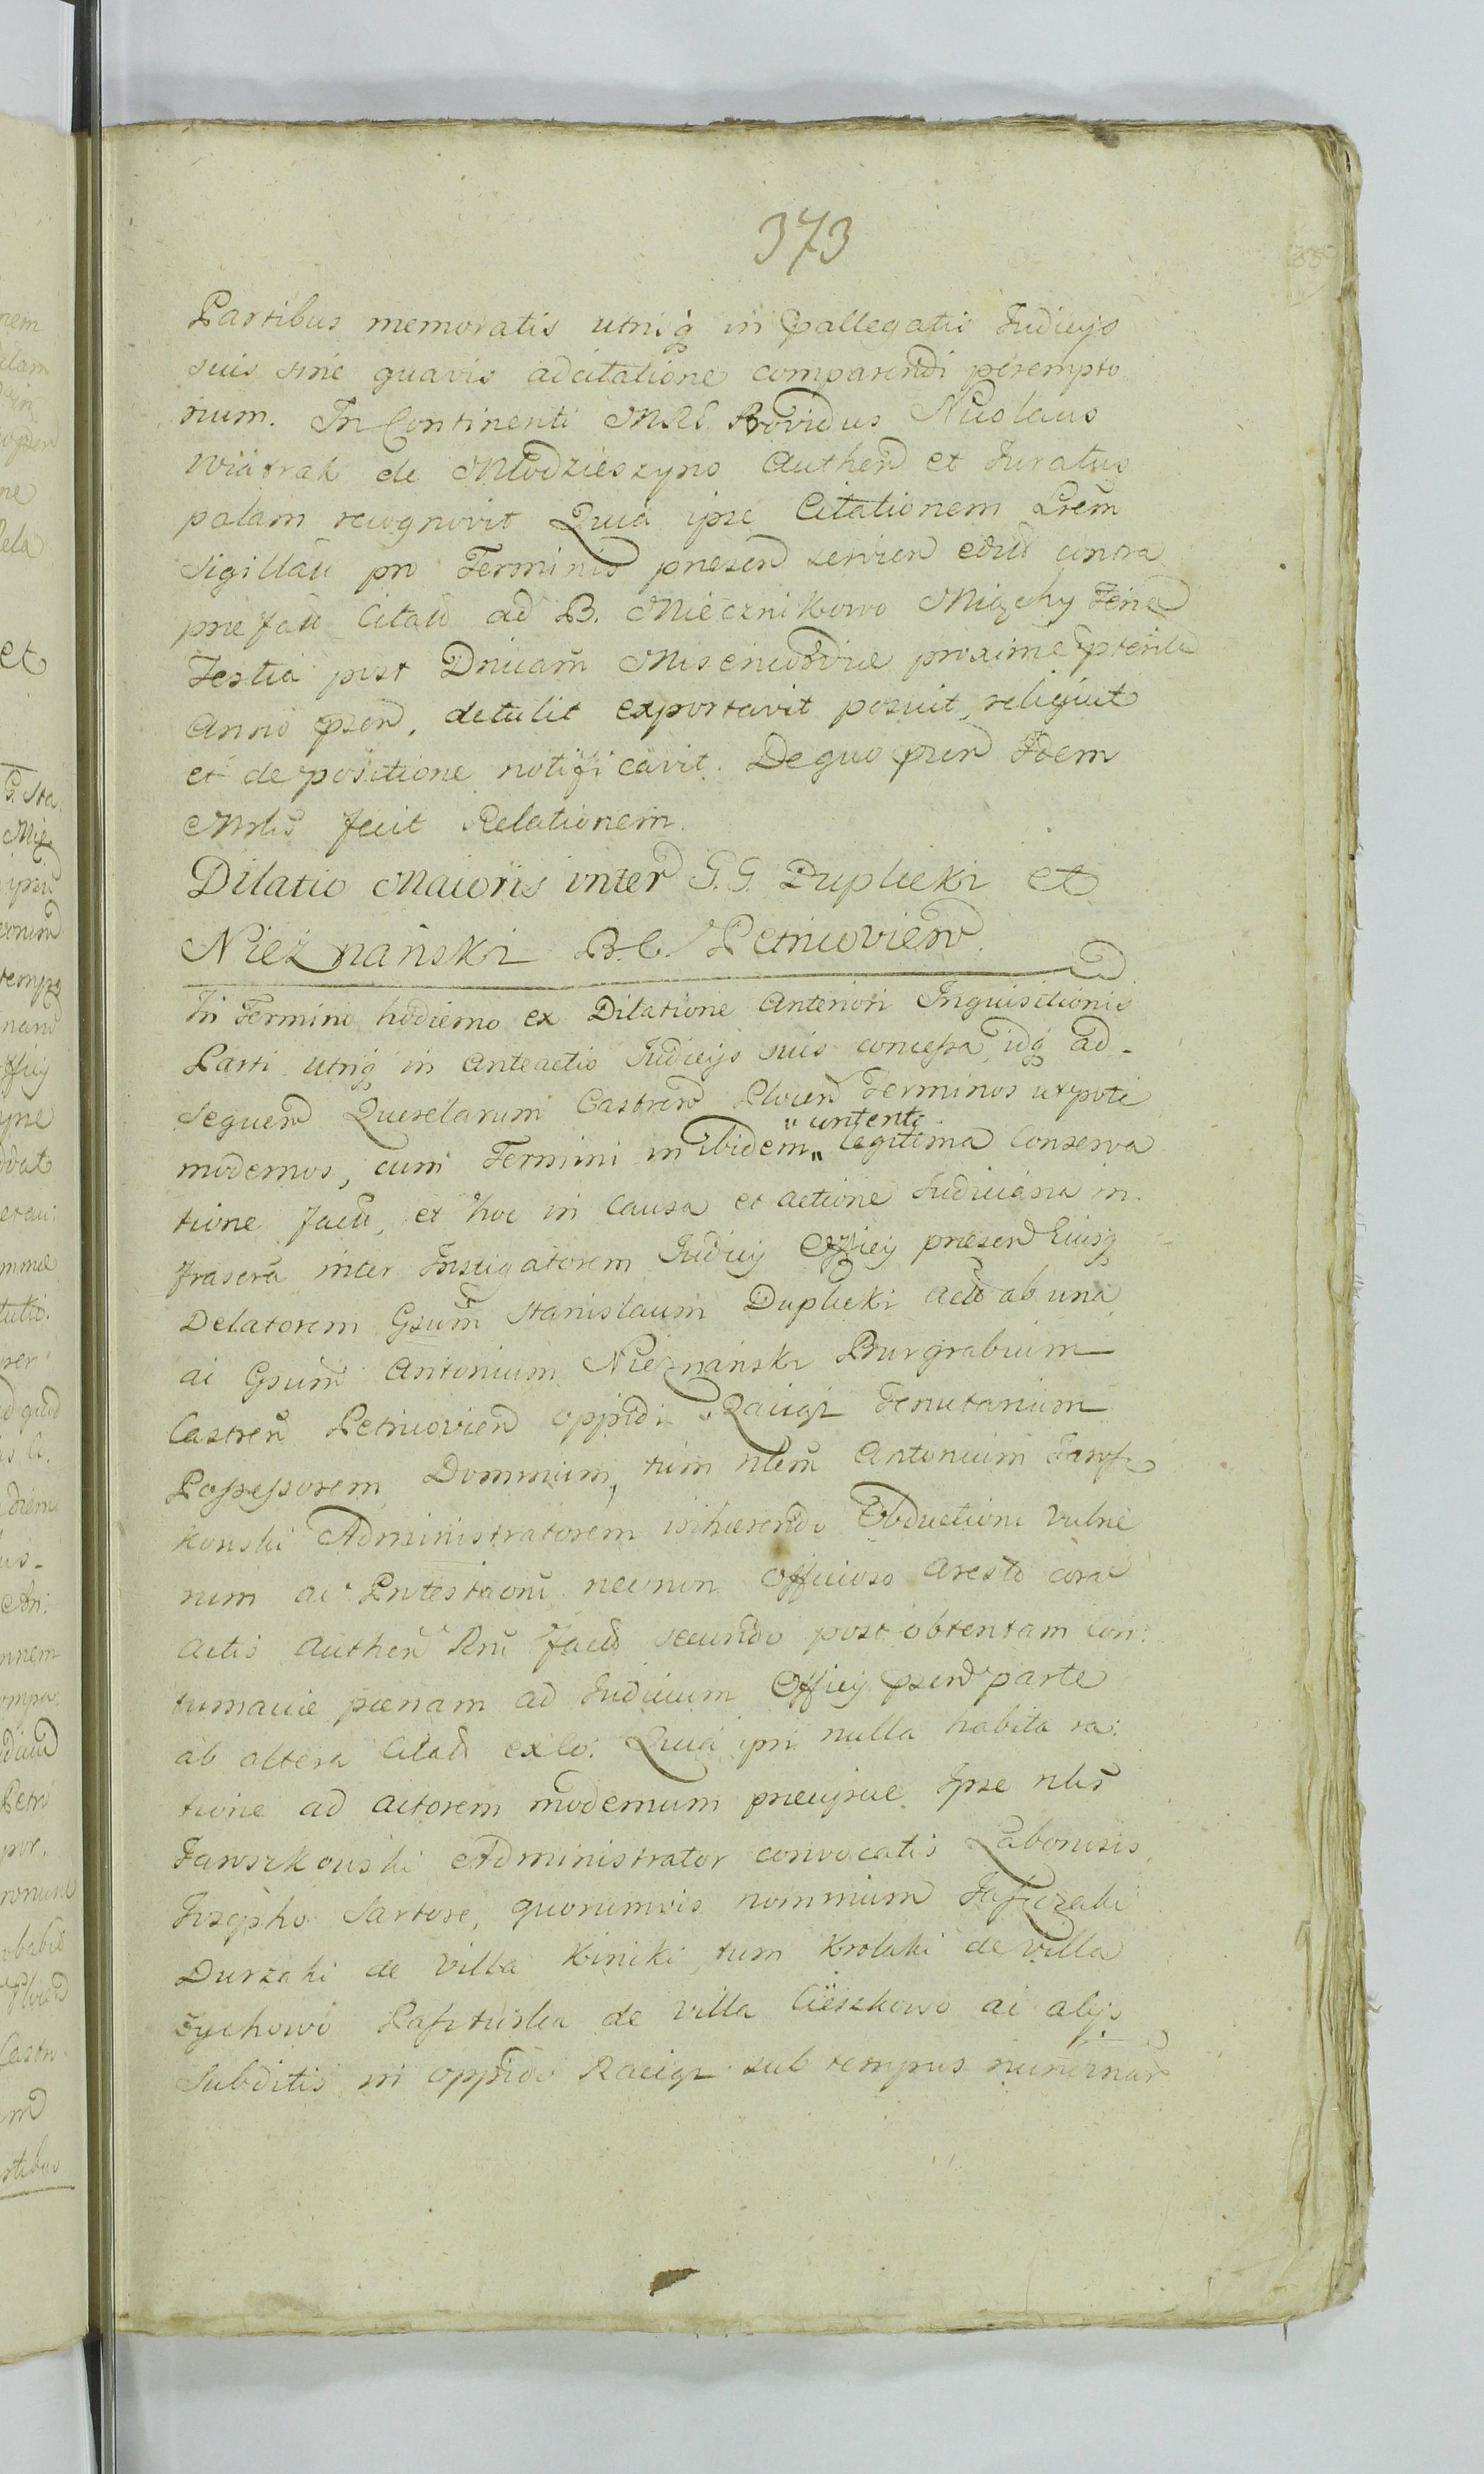 373
Partibus memoratis utriq in pallegatis Judicijs
suis sine quavis adcitatione comparendi perempto
rium. In Continenti MRS Providus Nicolaus
Wiatrak de Młodzieszyno Authen et Juratus
palam recognovit Quia ipse Citationem Lrem
Sigillatã pro Terminis præsen servien edit contra
præfatũ Citatũ ad B. Miecznikowo Miączky Feria
Tertia post Dnicam Misericordiæ proxime pteritã
Anno psen, detulit exportavit posuit, reliquit
et de positione notificavit. De quo psen Idem
Mrlis fecit Relationem.
Dilatio Maioris inter G.G. Duplicki et
Nieznański B.C. Petricovien
In Termino hodierno ex Dilatione Anteriori Inquisitionis
Parti utriq in anteactis Judicijs suis concessa, idq ad
sequen Querelarum Castren Plocen Terminos utpote
modernos, cum Termini in ibidem „ legitima Conserva
" contenti
tione factã, et hoc in Causa et actione Judiciaria in
frascrã inter Instigatorem Judicij Officij præsen Eiusq
Delatorem Gsum Stanislaum Duplicki act ab una
ac Gsum Antonium Nieznanski Burgrabium
Castren Petricovien oppidi Raciąż Tenutarium
Possessorem Dominum, tum Nlem Antonium Jarosz
kouski Administratorem inhærendo Obductioni Vulne
rum ac Protestaoni necnon officioso aresto corã
Actis Authen Rni factis secundo post obtentam Con:
tumaciæ pænam ad Judicium Officij psen parte
ab altera Citatũ ex eo: Quia ipsi nulla habita ra:
tione ad actorem modernum præcipue Ipse Nlis
Jaroszkouski Administrator convocatis Laboriosis
Josepho Sartore, quorumvis nominum
Durzaki de Villa Kiniki, tum Krolaki de villa
Zychowo de villa Cieszkowo ac alijs
Subditis in oppido Raciąż sub tempus